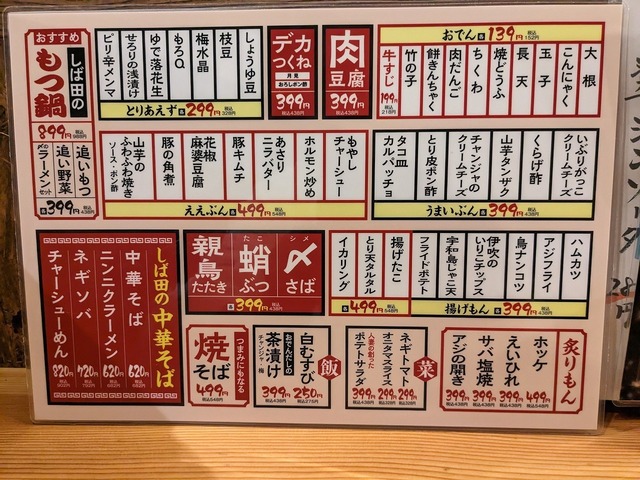 おすすめ
しば田の
もつ鍋
899円 税込988円
追いもつ
追い野菜
〆のラーメンセット
各399円 税込438円
しょうゆ豆
枝豆
梅水晶
もろQ
ゆで落花生
せろりの浅漬け
ピリ辛メンマ
とりあえず 各299円 税込328円
デカつくね
月見
おろしポン酢
399円
税込438円
肉豆腐
399円
税込438円
おでん 各139円 税込152円
大根
こんにゃく
玉子
長天
焼どうふ
ちくわ
肉だんご
餅きんちゃく
竹の子
牛すじ
199円
税込218円
もやしチャーシュー
ホルモン炒め
あさりニラバター
豚キムチ
花椒麻婆豆腐
豚の角煮
山芋のふわふわ焼き
ソース・ポン酢
ええぶん 各499円 税込548円
いぶりがっこクリームチーズ
くらげ酢
山芋タンザク
チャンジャのクリームチーズ
とり皮ポン酢
タコ皿カルパッチョ
うまいぶん 各399円 税込438円
しば田の中華そば
中華そば
620円
ニンニクラーメン
620円
ネギソバ
720円
チャーシューめん
820円
〆さば
シメ
蛸ぶつ
たこ
親鳥たたき
各399円 税込438円
ハムカツ
アジフライ
鳥ナンコツ
伊吹のいりこチップス
宇和島じゃこ天
フライドポテト
揚げもん 各399円 税込438円
揚げたこ
とり天タルタル
イカリング
各499円 税込548円
つまみにもなる
焼そば
499円
税込548円
飯
白むすび
250円
税込275円
おでんだしの
茶漬け
チャンジャ・梅
399円
税込438円
菜
ネギトマト
299円
オニタマスライス
299円
人妻の創った
ポテトサラダ
399円
炙りもん
ホッケ
499円
えいひれ
399円
サバ塩焼
399円
アジの開き
399円